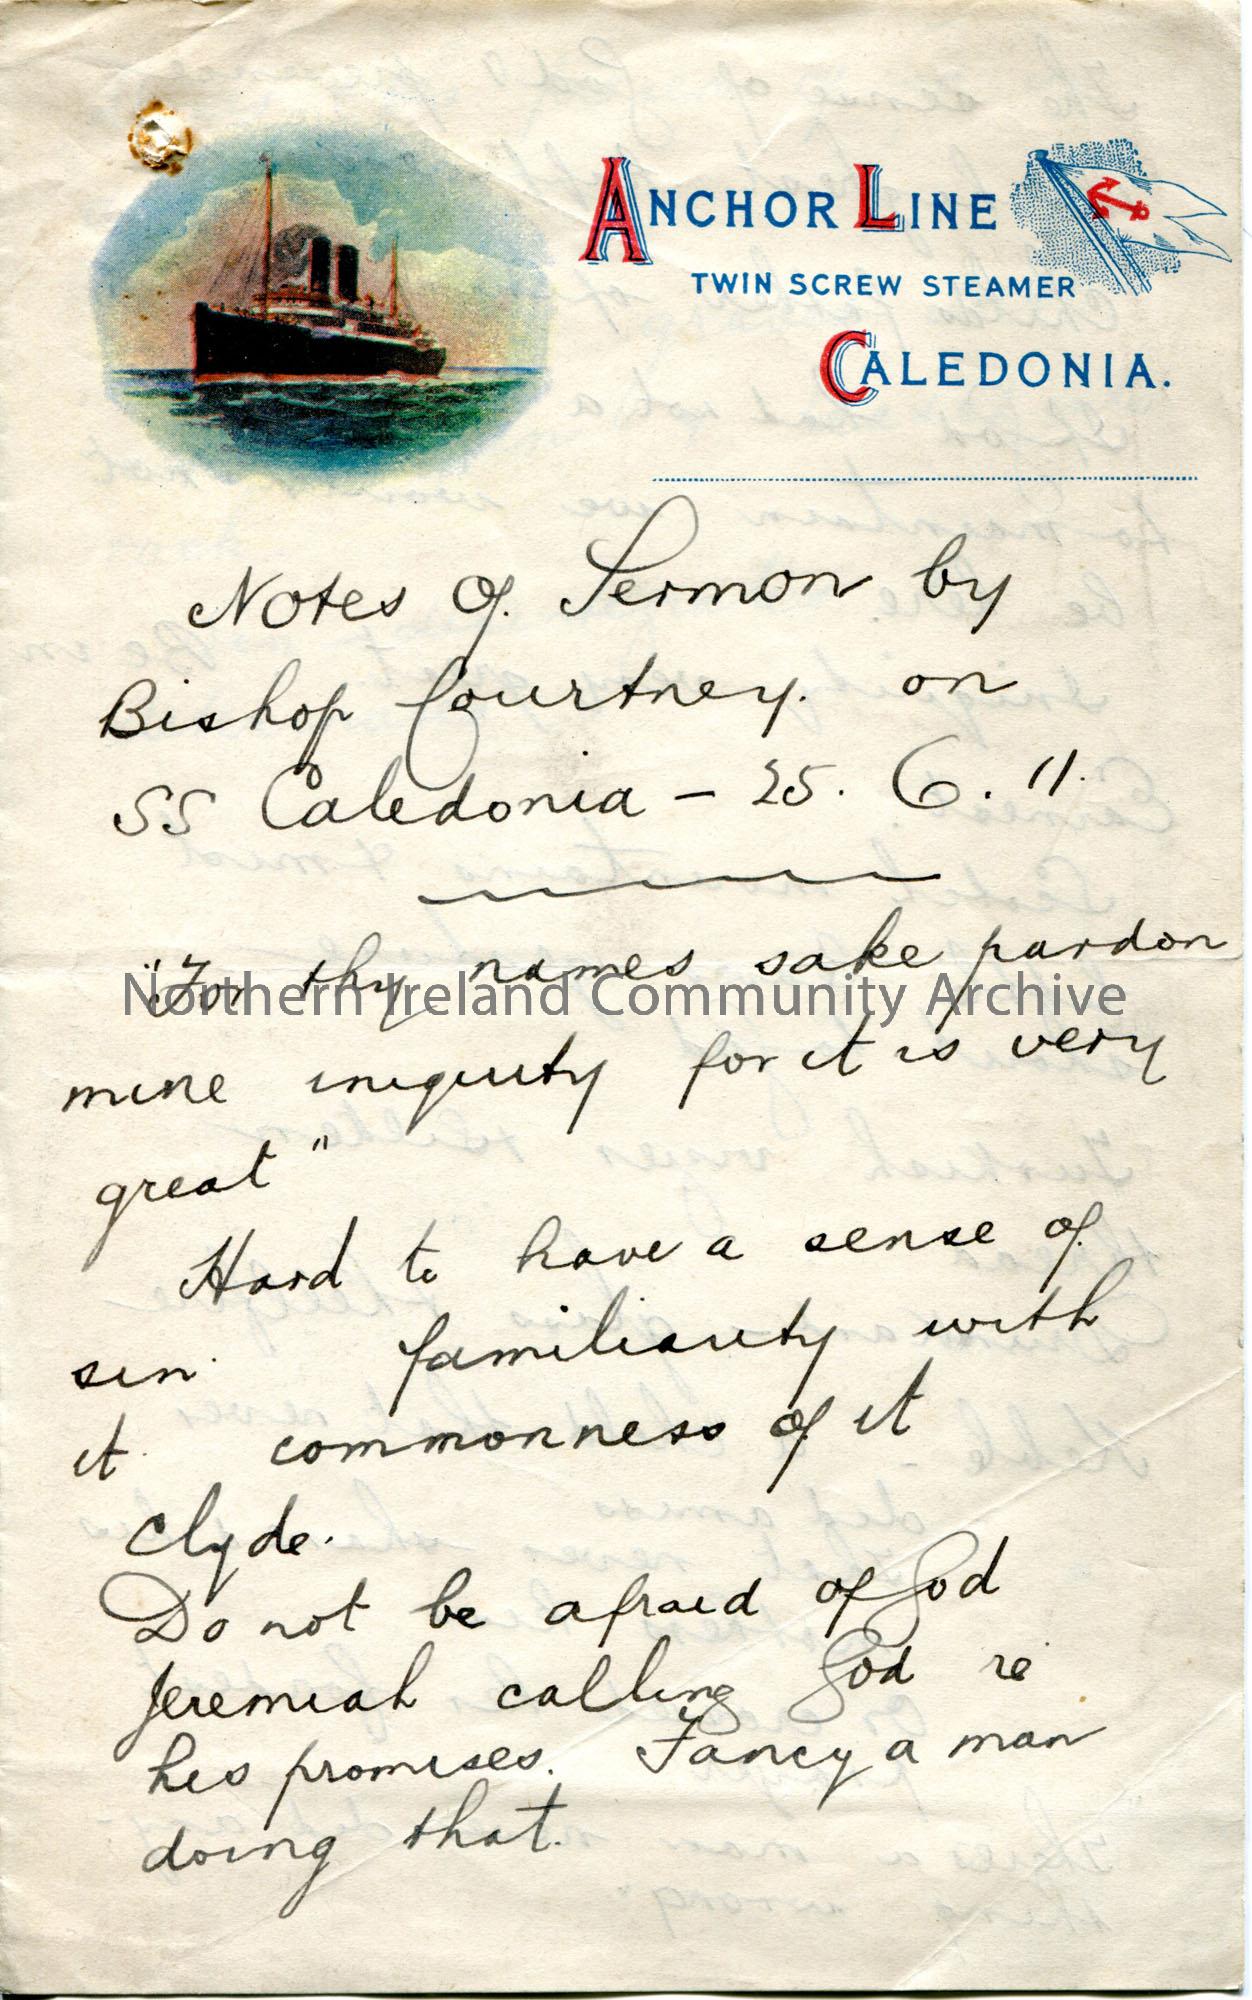 ANCHOR LINE
TWIN SCREW STEAMER
CALEDONIA.
Notes of Sermon by
Bishop Courtney. on
SS Caledonia – 25. 6. 11.
"For thy names sake pardon
Northern Ireland Community Archive
mine iniquity for it is very
great"
Hard to have a sense of
sin. familiarity with
it. commonness of it
Clyde.
Do not be afraid of God
Jeremiah calling God re
his promises. Fancy a man
doing that.